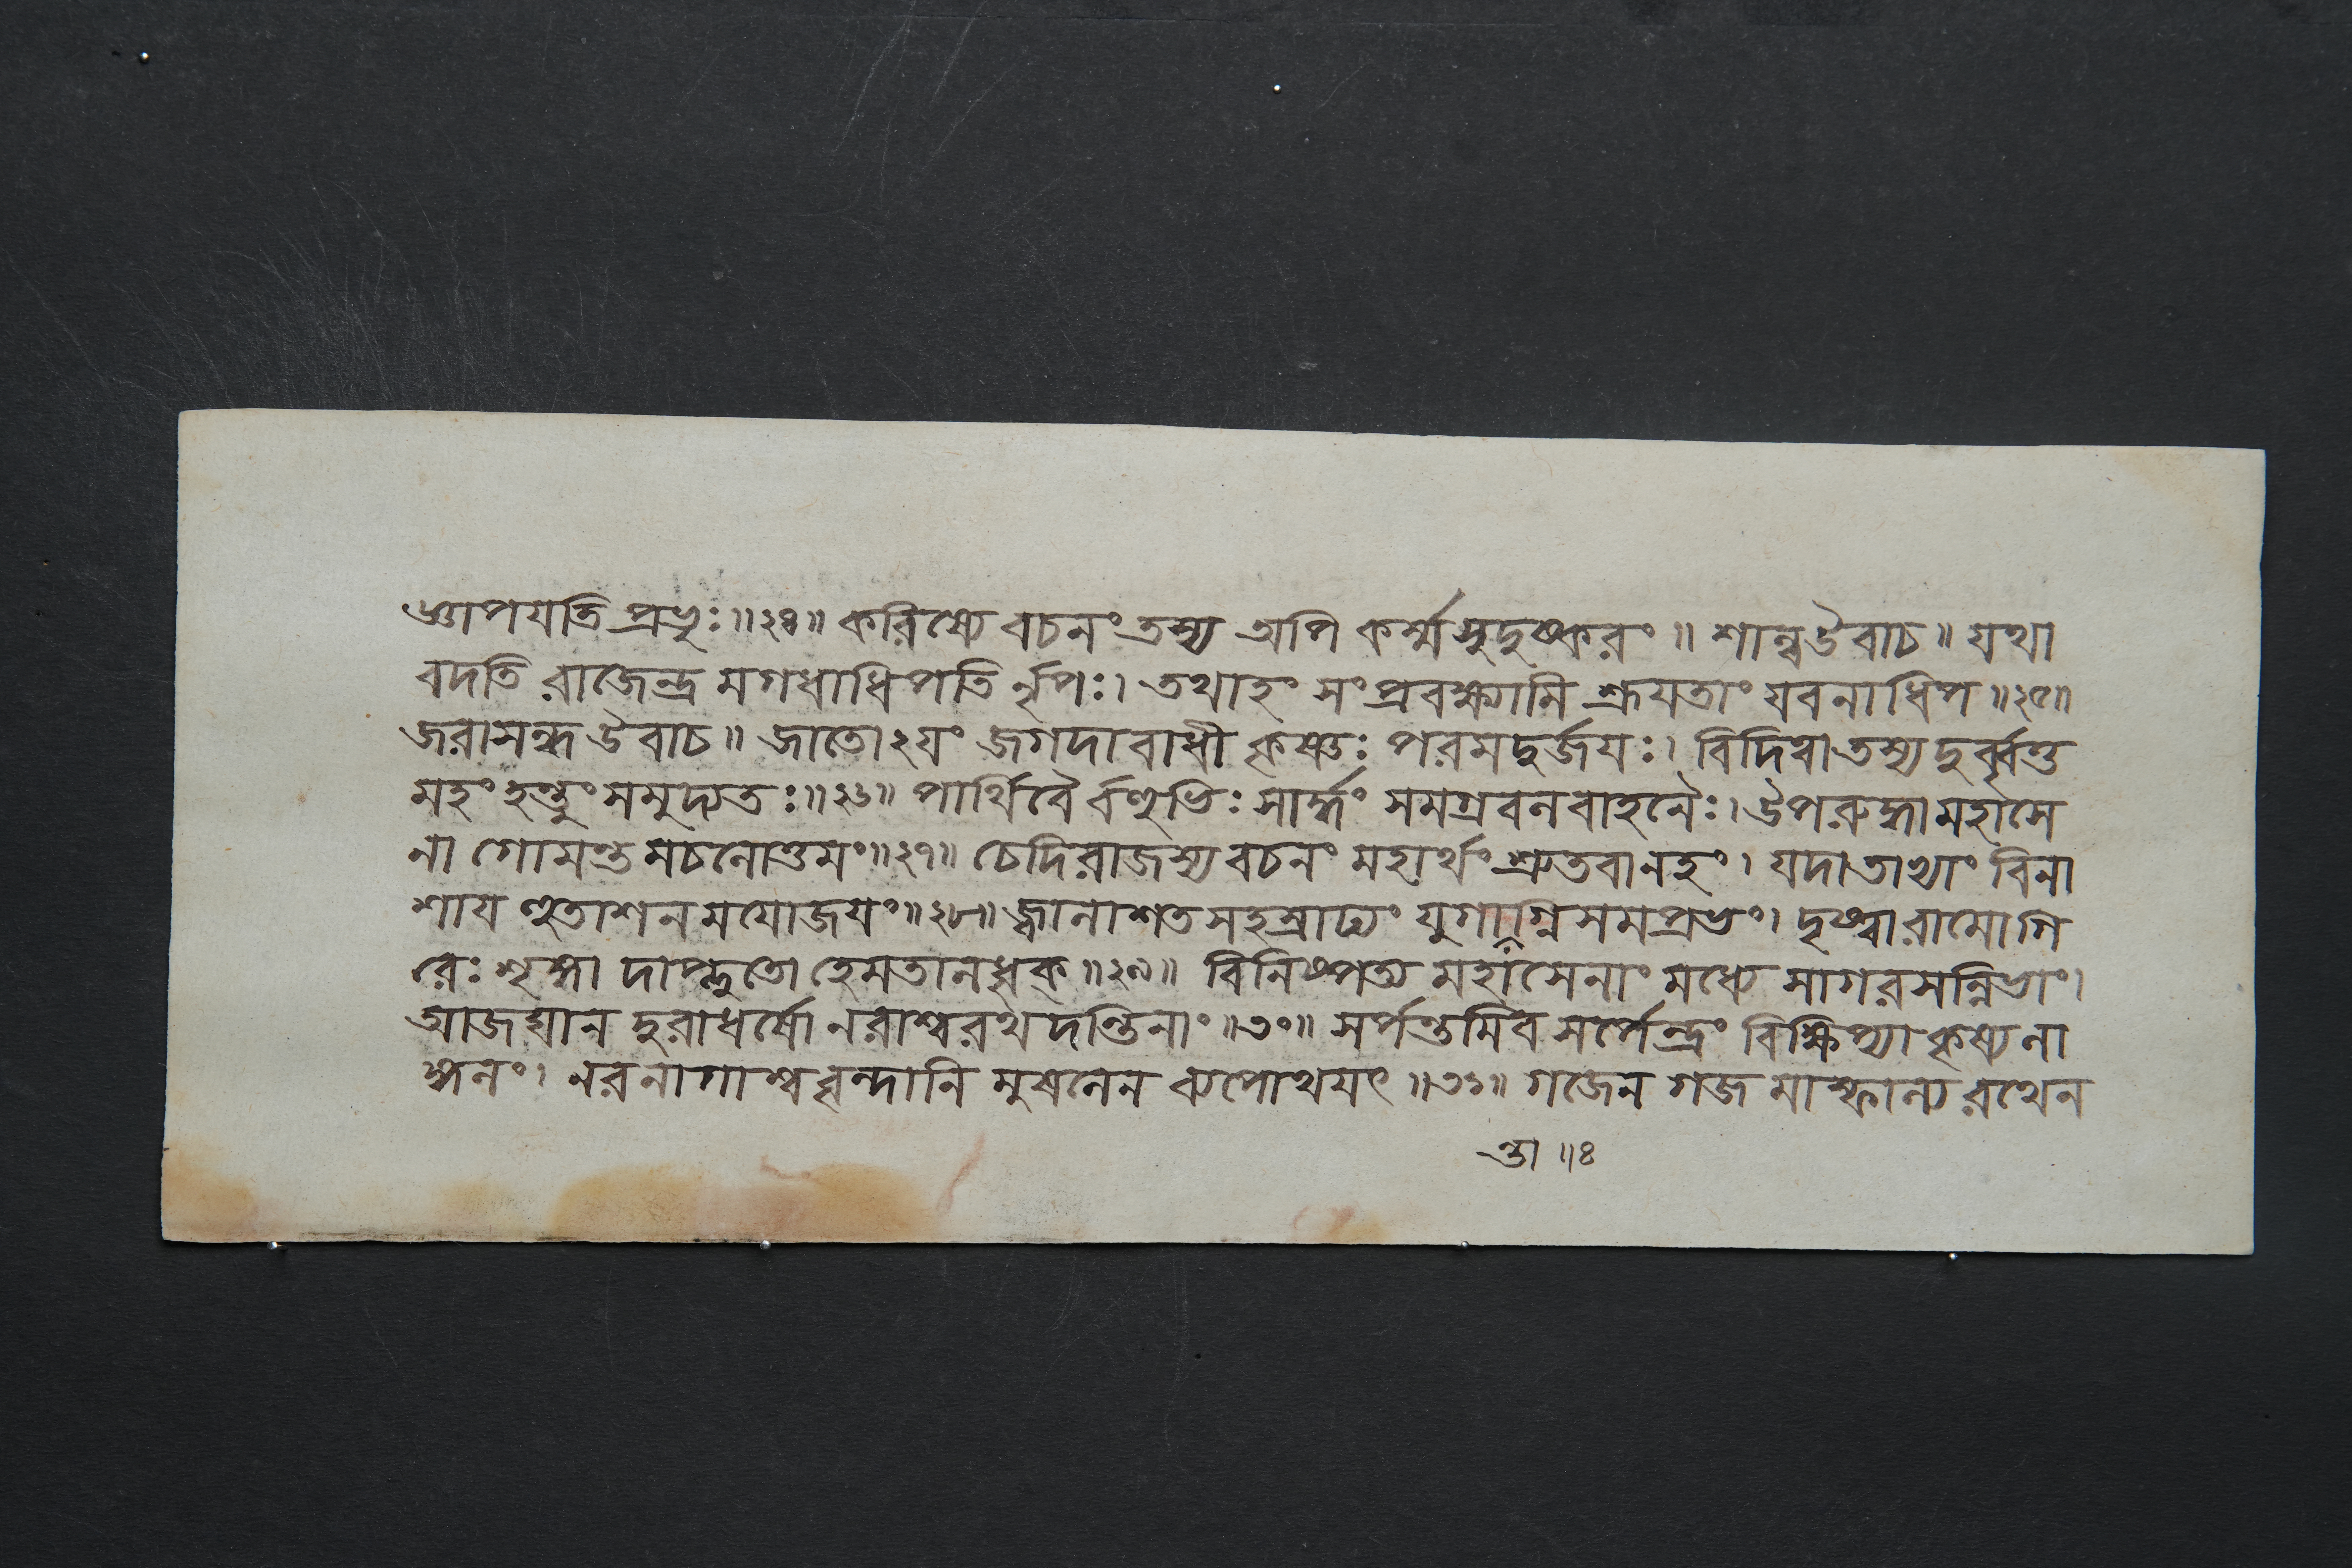 জ্ঞাপযতি প্রভুঃ॥২৪॥ করিষ্যে বচনং তস্য অপি কর্ম্মসুদুষ্করং॥ শাল্বউবাচ॥ যথা
বদতি রাজেন্দ্র মগধাধিপতি র্নৃপঃ। তথাহং সংপ্রবক্ষ্যামি শ্রূযতাং যবনাধিপ॥২৫॥
জরাসন্ধউবাচ॥ জাতোঽযং জগদাবাধী কৃষ্ণঃ পরমদুর্জযঃ। বিদিত্বাতস্য দুর্ব্বৃত্ত
মহং হন্তুং সমুদ্যতঃ॥২৬॥ পার্থিবৈ র্বহুভিঃ সার্দ্ধং সমগ্রবলবাহনৈঃ। উপরুদ্ধ্যামহাসে
না গোমন্ত মচলোত্তমং॥২৭॥ চেদিরাজস্য বচনং মহার্থং শ্রুতবানহং। যদাতাভ্যাং বিনা
শায হুতাশন মযোজযং॥২৮॥ জ্বালাশতসহস্রাঢ্যং যুগান্তাগ্নিসমপ্রভং। দৃষ্ট্বারামোগি
রেঃ শৃঙ্গা দাপ্লুতো হেমতালধৃক্॥২৯॥ বিনিষ্পত্য মহাসেনাং মধ্যে সাগরসন্নিভাং।
আজঘান দুরাধর্ষো নরাশ্বরথদন্তিনাং॥৩০॥ সর্পন্তমিব সর্পেন্দ্রং বিক্ষিপ্যা কৃষ্যলা
ঙ্গলং। নরনাগাশ্ববৃন্দানি মুষলেন ব্যপোথযৎ॥৩১॥ গজেন গজ মাস্ফাল্য রথেন
ন্তা॥৪